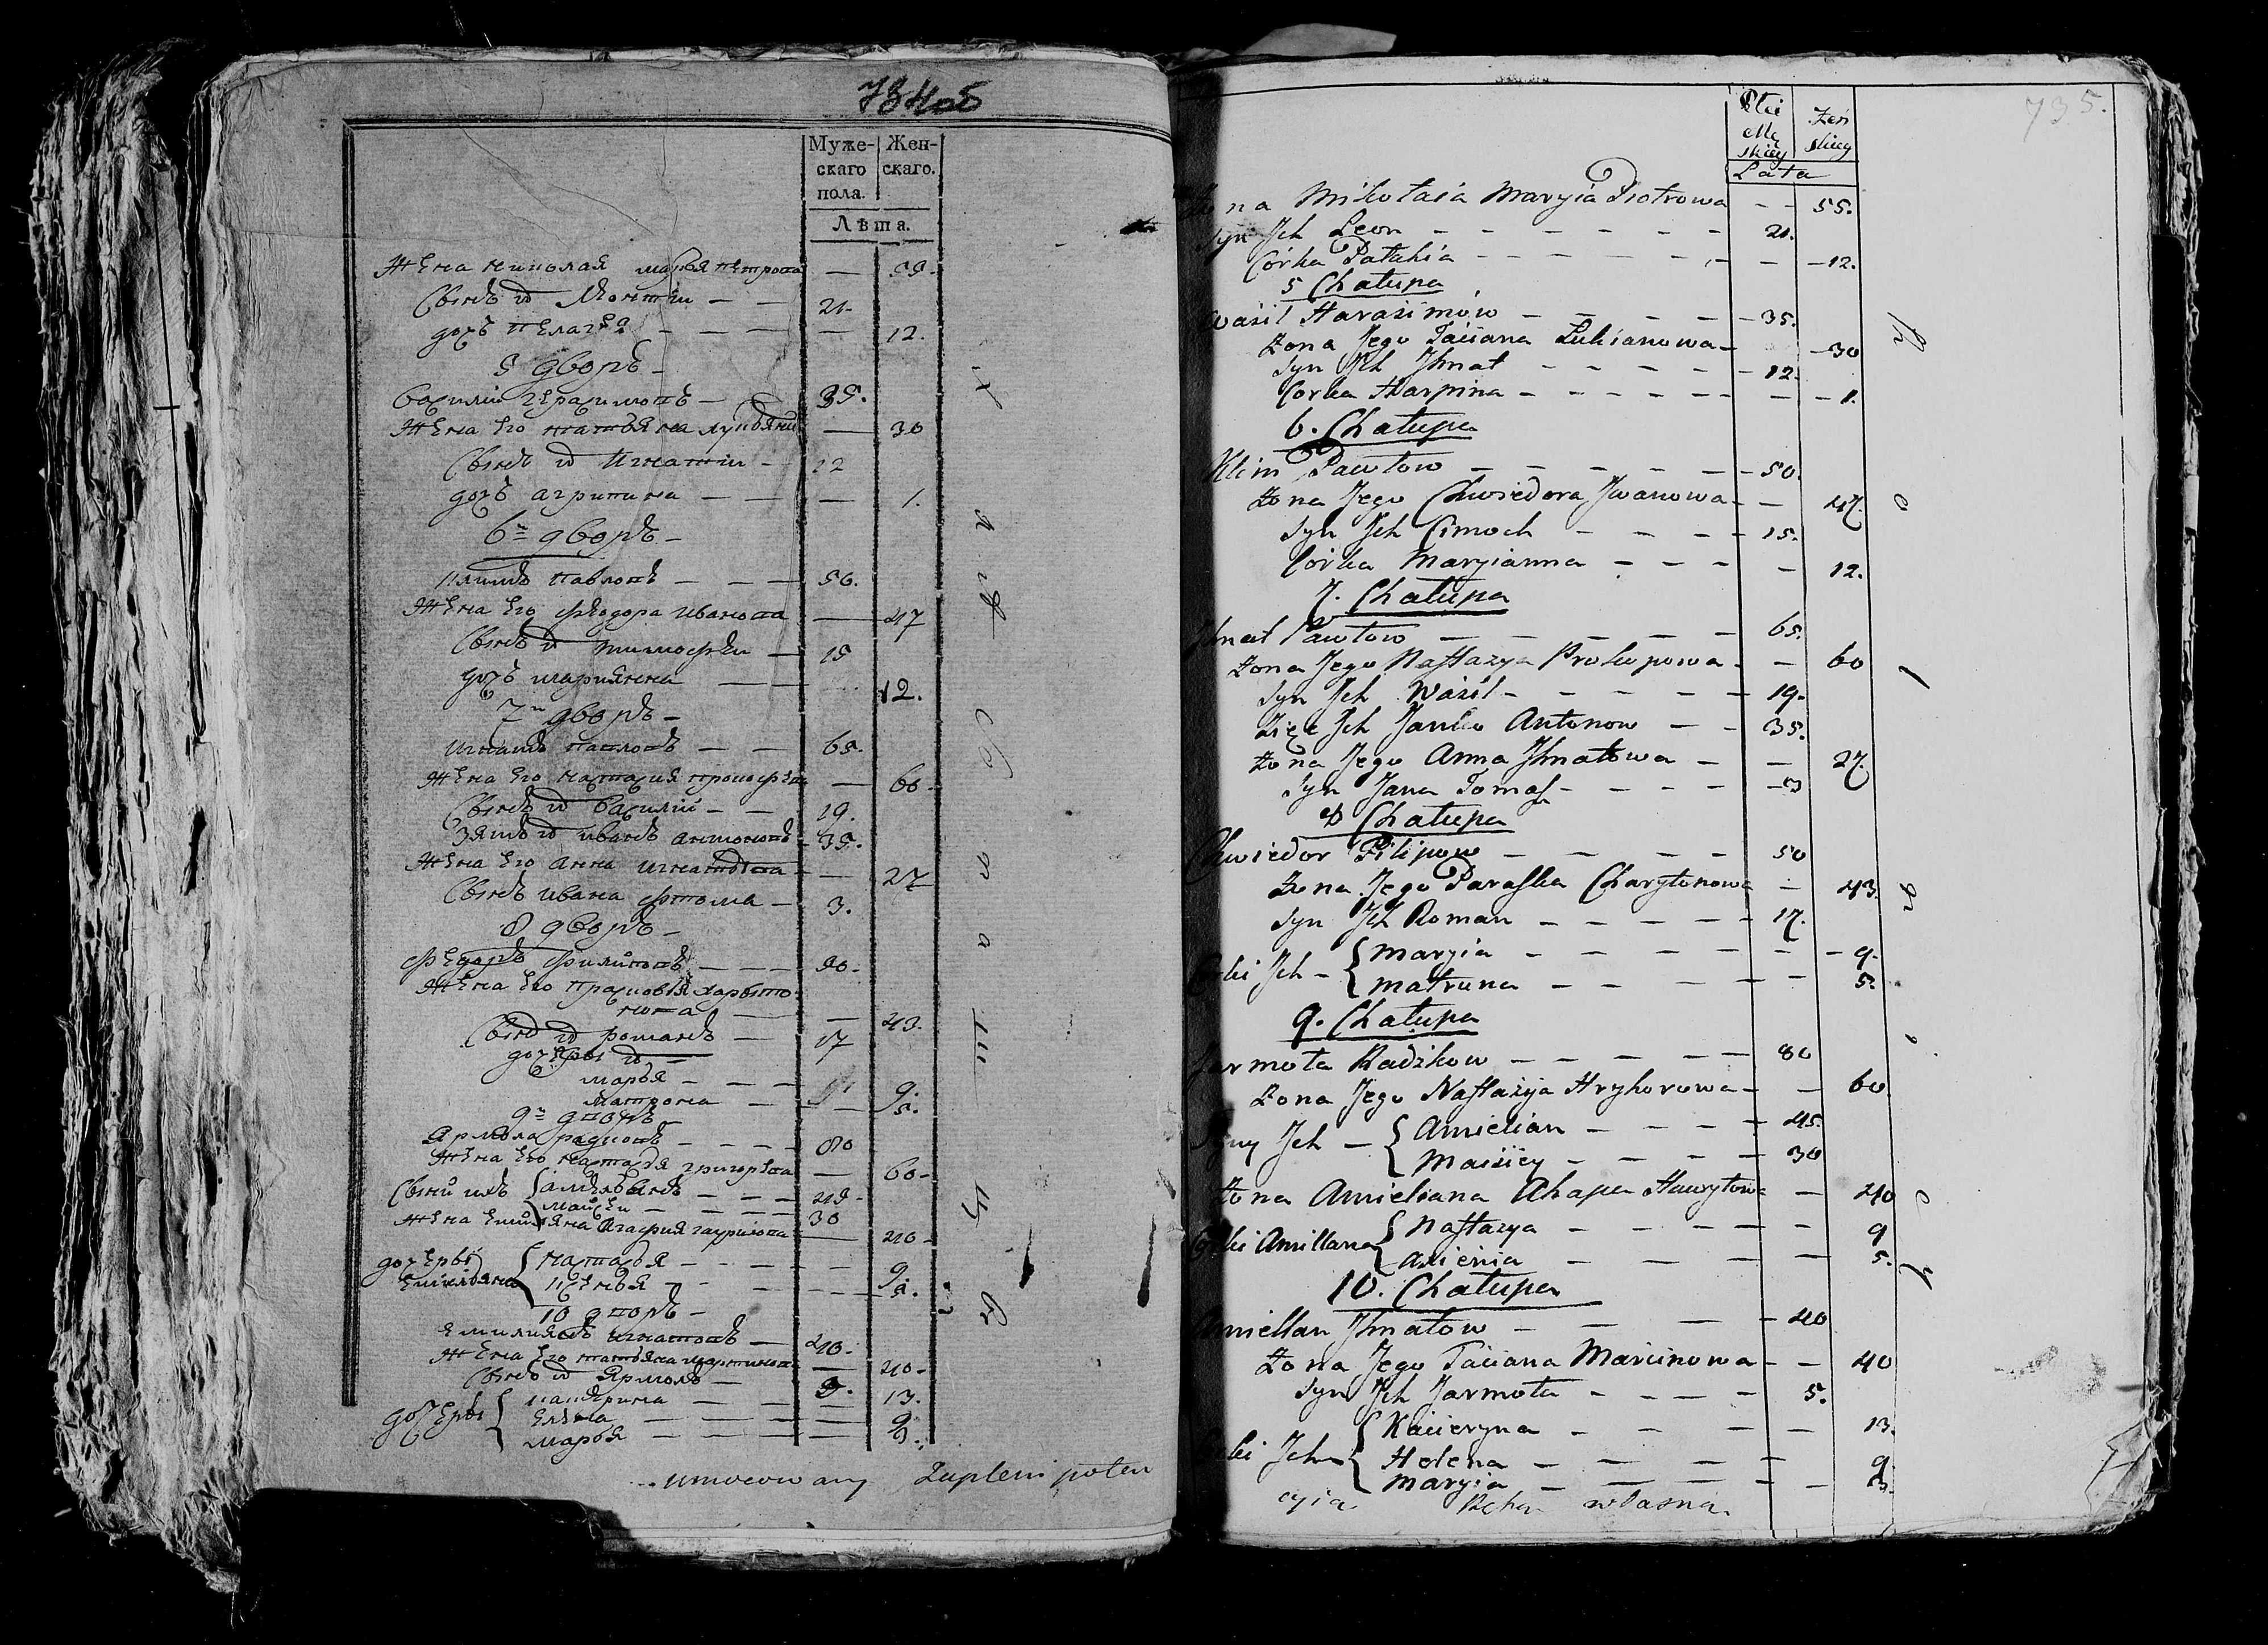 734об
Муже- Жен-
скаго скаго.
пола.
Лѣта.
Жена Николая Марья Петрова — 55.
Сынъ их Леонтiй — — 21.
дочь Пелагея — — — — 12.
5 дворъ —
Василiй Герасимовъ — 35.
Жена Его татьяна лукьянова — 30
Сынъ их Игнатiй — 12
дочь агрипина — — — 1.
6й дворъ —
Климъ Павловъ — — — 50.
Жена Его Феодора Иванова — 47
Сынъ их тимофей — 15
дочь марианна — — 12.
7й дворъ —
Игнатъ Павловъ — — 65.
Жена Его настасия прокофьева — 60
Сынъ их Василiй — — 19.
Зять их Иванъ антоновъ — 35.
Жена Его анна Игнатьева — — 27
Сынъ Ивана фтома — 3.
8 дворъ —
Федоръ Филиповъ — — — 50.
Жена Его Прасковья харыто
нова — — 43.
Сынъ их романъ — 17
дочеры их —
марья — — — 9.
матрона — — 5.
9й дворъ
Ярмола радковъ — — — — 80
Жена Его настасья григорьева — 60
Сыны ихъ { амельянъ — — — 45
майсей — — — — 30
Жена Емильяна Агафия гаурилова — 40
дочеры { настасья — — — — 9
Емильяна ксенья — — — — 5.
10 дворъ —
Емилиянъ Игнатовъ — 40.
Жена Его татьяна мартинова — 40
Сынъ их Ярмола — 5.
дочеры { катерина — — — 13.
Елена — — — 9
марья — — — 3.
umocowany Zupleni poten
735.
Płci
Mę
skiey Żeń
skiey
Lata
Żona Mikołaia Maryia Piotrowa — — 55.
Syn Ich Leon — — — — — — 21.
Córka Pałahia — — — — — — — 12.
5 Chałupa
Wasil Harasimow — — — — 35.
Żona Jego Taciana Łukianowa — — 30
Syn Ich Jhnat — — — — — 12.
Corka Harpina — — — — — — — 1.
6. Chałupa
Klim Pawłow — — — — — 50.
Żona Jego Chwiedora Jwanowa — — 47.
Syn Ich Cimoch — — — — 15.
Córka Maryianna — — — — 12.
7. Chałupa
Jhnat Pawłow — — — — — 65.
Żona Jego Nastazya Prokopowa — — 60
Syn Ich Wasil — — — — — 19.
Zięć Ich Janko Antonow — — 35.
Żona Jego Anna Jhnatowa — — 27.
Syn Jana Tomasz — — — — 3
8 Chałupa
Chwiedor Filipow — — — — 50
Żona Jego Paraska Charytonowa — 43.
Syn Ich Roman — — — — — 17.
Córki Ich — { Maryia — — — — — — — 9.
Matruna — — — — 5.
9. Chałupa
Jarmoła Radzikow — — — — — 80
Żona Jego Nastazyia Hryhorowa — — 60
Syny Ich — { Amielian — — — — 45.
Maisiey — — — — 30
Żona Amieliana Ahapa Hawryłowa — 40
Córki Amillana { Nastazya — — — — — 9
Axienia — — — — 5.
10. Chałupa
Amiellan Jhnatow — — — — 40
Żona Jego Taciana Marcinowa — — 40
Syn Ich Jarmoła — — — — 5.
Córki Ich { Kacieryna — — — — 13.
Helena — — — — 9
Maryia — — — — 3.
cyia Ręka własna.